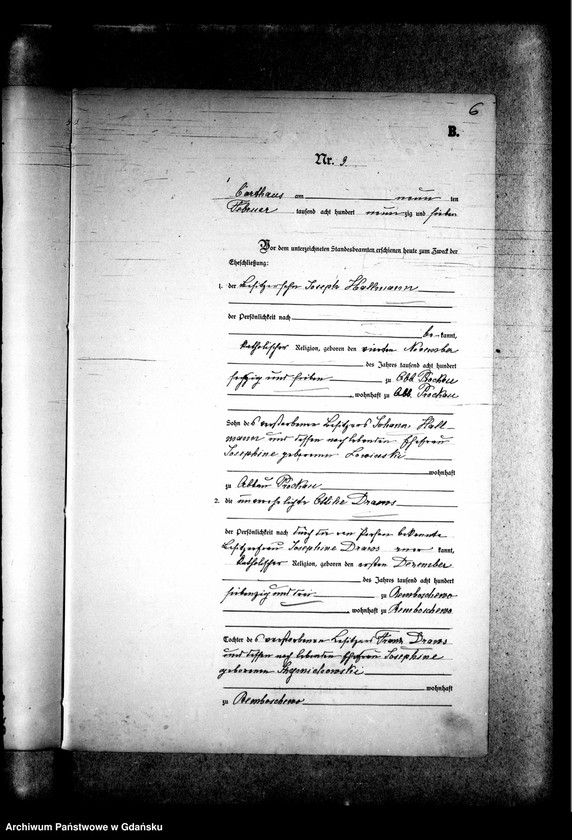 6
B.
Nr. 9
Carthaus am neun ten
Februar tausend acht hundert neunzig und sieben
Vor dem unterzeichneten Standesbeamten erschienen heute zum Zweck der
Eheschließung:
1. der Besitzersohn Joseph Hallmann
der Persönlichkeit nach
be kannt,
katholischer Religion, geboren den vierten November
des Jahres tausend acht hundert
sechzig und sieben zu Abb. Prockau
wohnhaft zu Abb. Prockau
Sohn des verstorbenen Besitzers Johann Hall-
mann und dessen nachlebenden Ehefrau
Josephine geborenen Lewinski
wohnhaft
zu Abbau Prockau
2. die unverehelichte Ottilie Draws
der Persönlichkeit nach durch die von Person bekannte
Besitzerfrau Josephine Draws aner kannt,
katholischer Religion, geboren den ersten Dezember
des Jahres tausend acht hundert
siebenzig und drei zu Remboschewo
wohnhaft zu Remboschewo
Tochter des verstorbenen Besitzers Franz Draws
und dessen nachlebenden Ehefrau Josephine
geborenen
wohnhaft
zu Remboschewo
Archiwum Państwowe w Gdańsku